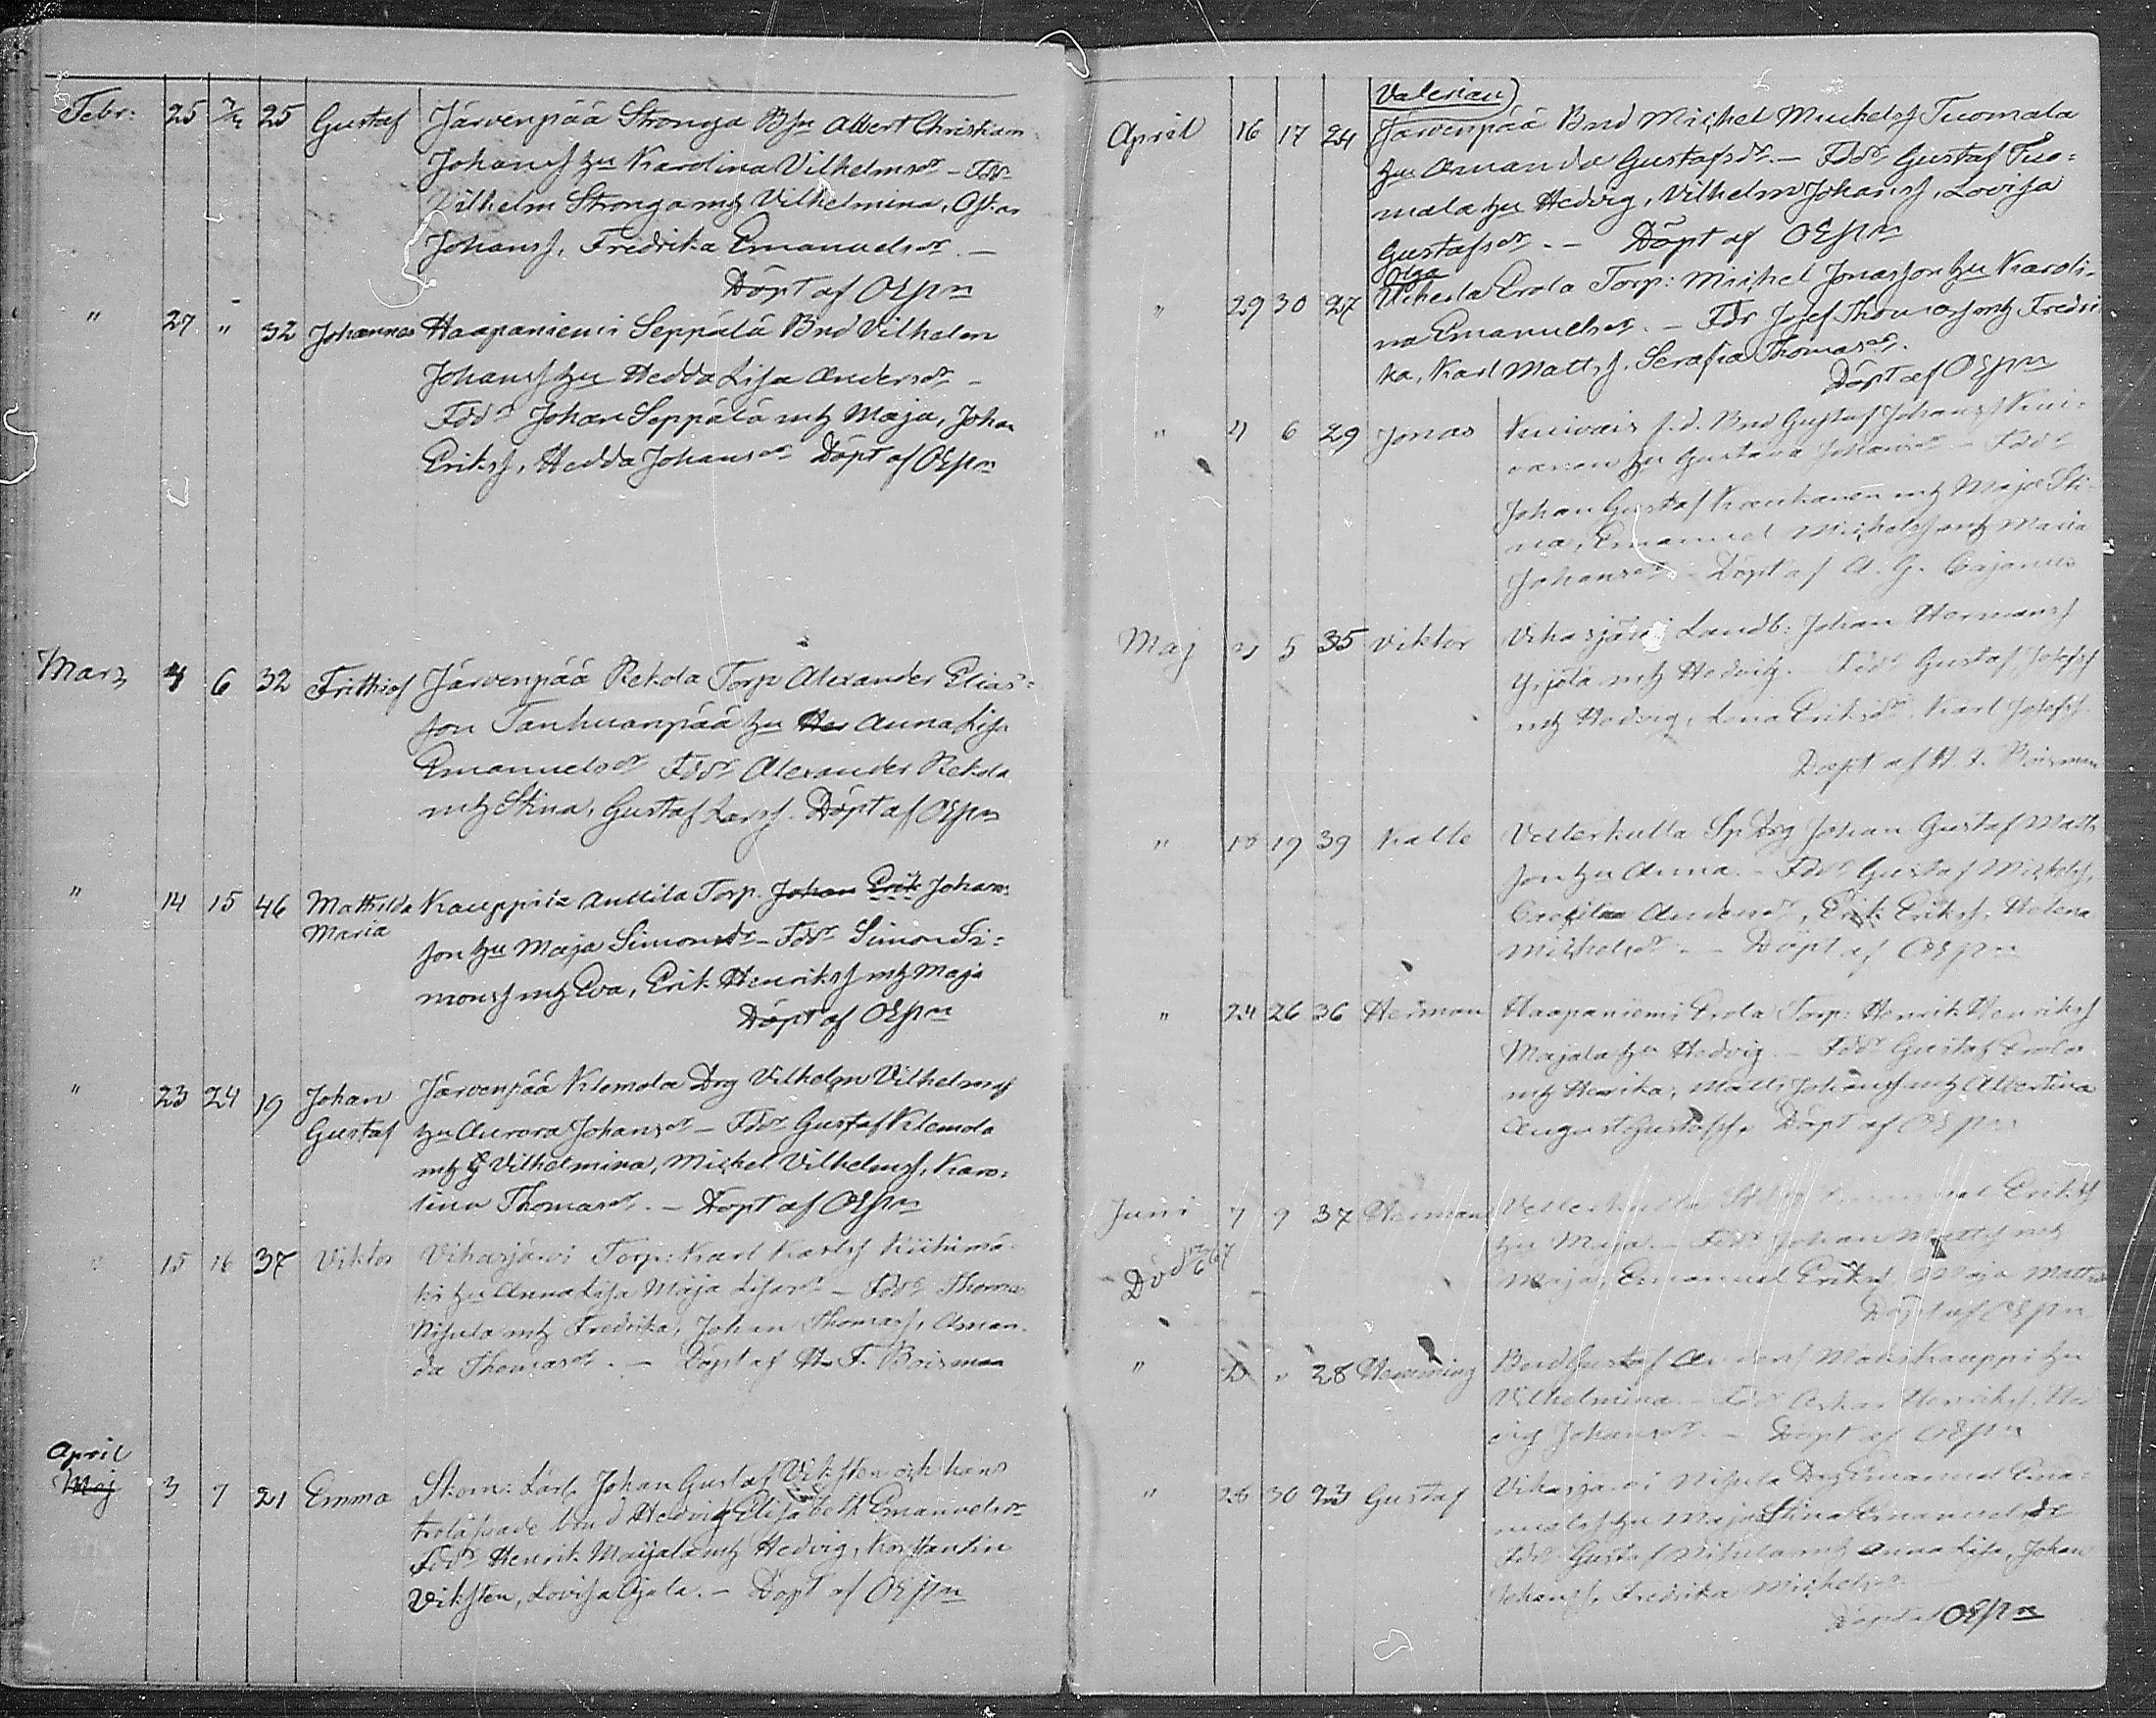 Febr: 25 2/2 25 Gustaf Järvenpää Stronga Bsn Albert Christian
Johanss hu Karolina Vilhelmsdr - Fddr
Vilhelm Stronga mh Vilhelmina, Oskar
Johanss, Fredrika Emanuelsdr. -
Döpt af OEspn
" 27 " 32 Johannes Haapaniemi Seppälä Bnd Vilhelm
Johanss hu Hedda Lisa Andersdr -
Fddr Johan Seppälä mh Maja, Johan
Erikss, Hedda Johansdr Döpt af OEspn
Mars 4 6 32 Frithiof Järvenpää Rekola Torp Alexander Elias-
son Tanhuanpää hu Anna Lisa
Emanuelsdr Fddr Alexander Rekola
mh Stina, Gustaf Larss. Döpt af OEspn
" 14 15 46 Mathilda Kauppila Anttila Torp. Johan Erik Johans-
Maria
son hu Maja Simonsdr - Fddr Simon Si-
monss mh Eva, Erik Henrikss mh Maja
Döpt af OEspn
" 23 24 19 Johan Järvenpää Klemola Drg Vilhelm Vilhelmss
Gustaf hu Aurora Johansdr - Fddr Gustaf Klemola
mh Vilhelmina, Michel Vilhelmss, Karo-
lina Thomasdr. - Döpt af OEspn
15 16 37 Viktor Vihasjärvi Torp: Karl Karlss Kiikunä-
hu Anna Lisa Maja Lisasdr - Fddr Thomas
Nipula mh Fredrika, Johan Thomass, Aman-
da Thomasdr. - Döpt af H. F. Boisman
April
Maj 3 7 21 Emma Skom: Lärl: Johan Gustaf Viksten och hans
trolofvade Hedvig Elisabeth Emanuelsdr
Fddr Henrik Majjala mh Hedvig, Konstantin
Viksten, Lovisa Ojala. - Döpt af OEspn
Valerian
April 16 17 24 Järvenpää Bnd Michel Michelss Tuomala
hu Amanda Gustafsdr. - Fddr Gustaf Tuo-
mala hu Hedvig, Vilhelm Johanss, Lovisa
Gustafsdr. - Döpt af OEspn
Olga
" 29 30 27 Erola Torp: Michel Jonasson hu Karoli-
na Emanuelsdr. - Fddr Josef Thomass mh Fredri
ka, Karl Mattss. Serafia Thomasdr.
Döpt af OEspn
" 4 6 29 Jonas Kuivais f.d. Bnd Gustaf Johanss Kui-
vanen hu Gustava Johansdr - Fddr
Johan Gustaf mh Maja Sti-
na, Emanuel Michelss mh Maria
Johansdr - Döpt af A. G. Cajanus
Maj 5 35 Viktor Vihasjärvi Landb: Johan Hermanss
mh Hedvig. - Fddr Gustaf Josefss
mh Hedvig, Lena Eriksdr. Karl Josefss.
Döpt af H. F. Boisman
" 18 19 39 Kalle Vesterkulla Sp Drg Johan Gustaf Matts
son hu Anna. - Fddr Gustaf Michelss,
Caecilia Andersdr, Erik Erikss, Helena
Michelsdr - Döpt af OEspn
" 24 26 36 Herman Haapaniemi Erola Torp: Henrik Henrikss
Majala hu Hedvig. - Fddr Gustaf Erola
mh Henrika, Matts Johanss mh Albertina
August Gustafss, Döpt af OEspn
Juni 7 9 37 Herman Vesterkulla Emanuel Erikss
hu Maja. - Fddr Johan Mattss mh
Död Maja, Emanuel Erikss, Maja Matts
Döpt af OEspn
" 28 Henning Bnd Gustaf Anderss hu
Vilhelmina. - Fddr Oskar Henrikss, Hed
vig Johansdr. - Döpt af OEspn
" 28 30 23 Gustaf Vihasjärvi Nipula Drg Emanuel Ema-
nuelss hu Maja Stina Emanuelsdr
Fddr Gustaf Nikula mh Anna Lisa, Johan
Johanss, Fredrika Michelsdr
Döpt af OEspn